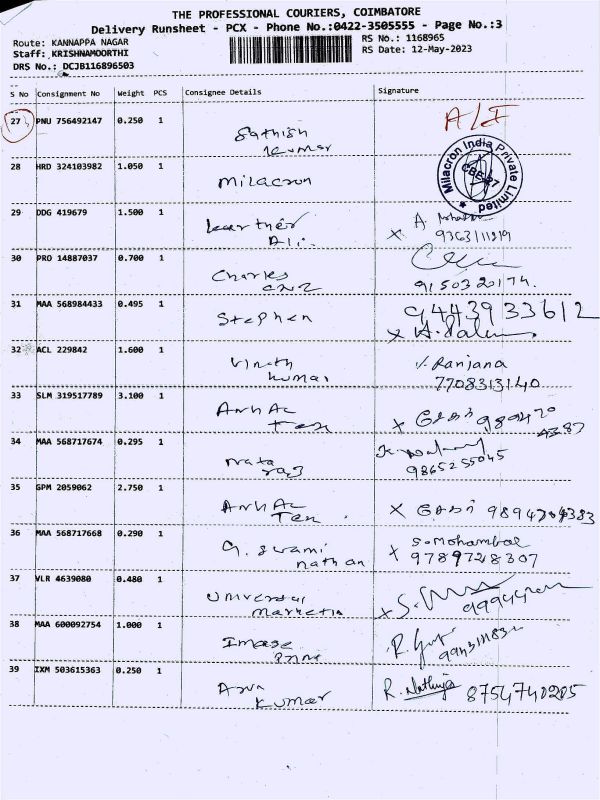 THE PROFESSIONAL COURIERS, COIMBATORE
Delivery Runsheet - PCX - Phone No.:0422-3505555 - Page No.:3
Route: KANNAPPA NAGAR
RS No.: 1168965
Staff: KRISHNAMOORTHI
RS Date: 12-May-2023
DRS No.: DCJB116896503
S No Consignment No Weight PCS Consignee Details Signature
27 PNU 756492147 0.250 1 Sathish
Kumar
A/I
28 HRD 324103982 1.050 1 Milacron
Milacron India Private Limited
CBE-27
29 DDG 419679 1.500 1 Karthik
Ali. X. A
30 PRO 14887037 0.700 1 Charles
9150320174.
31 MAA 568984433 0.495 1 Stephen 9443933612
X
32 ACL 229842 1.600 1 Vinoth
Kumar
Ranjana
7708313140
33 SLM 319517789 3.100 1 X
34 MAA 568717674 0.295 1 Nata
raj
9865255045
35 GPM 2059062 2.750 1 X
36 MAA 568717668 0.290 1 G. Swami
nathan
S. Mohambal
X 9789728307
37 VLR 4639080 0.480 1 Universal
Marketin
X S.
38 MAA 600092754 1.000 1 Image
R.
39 IXM 503615363 0.250 1 Arun
Kumar
R. Nathiya 8754740205